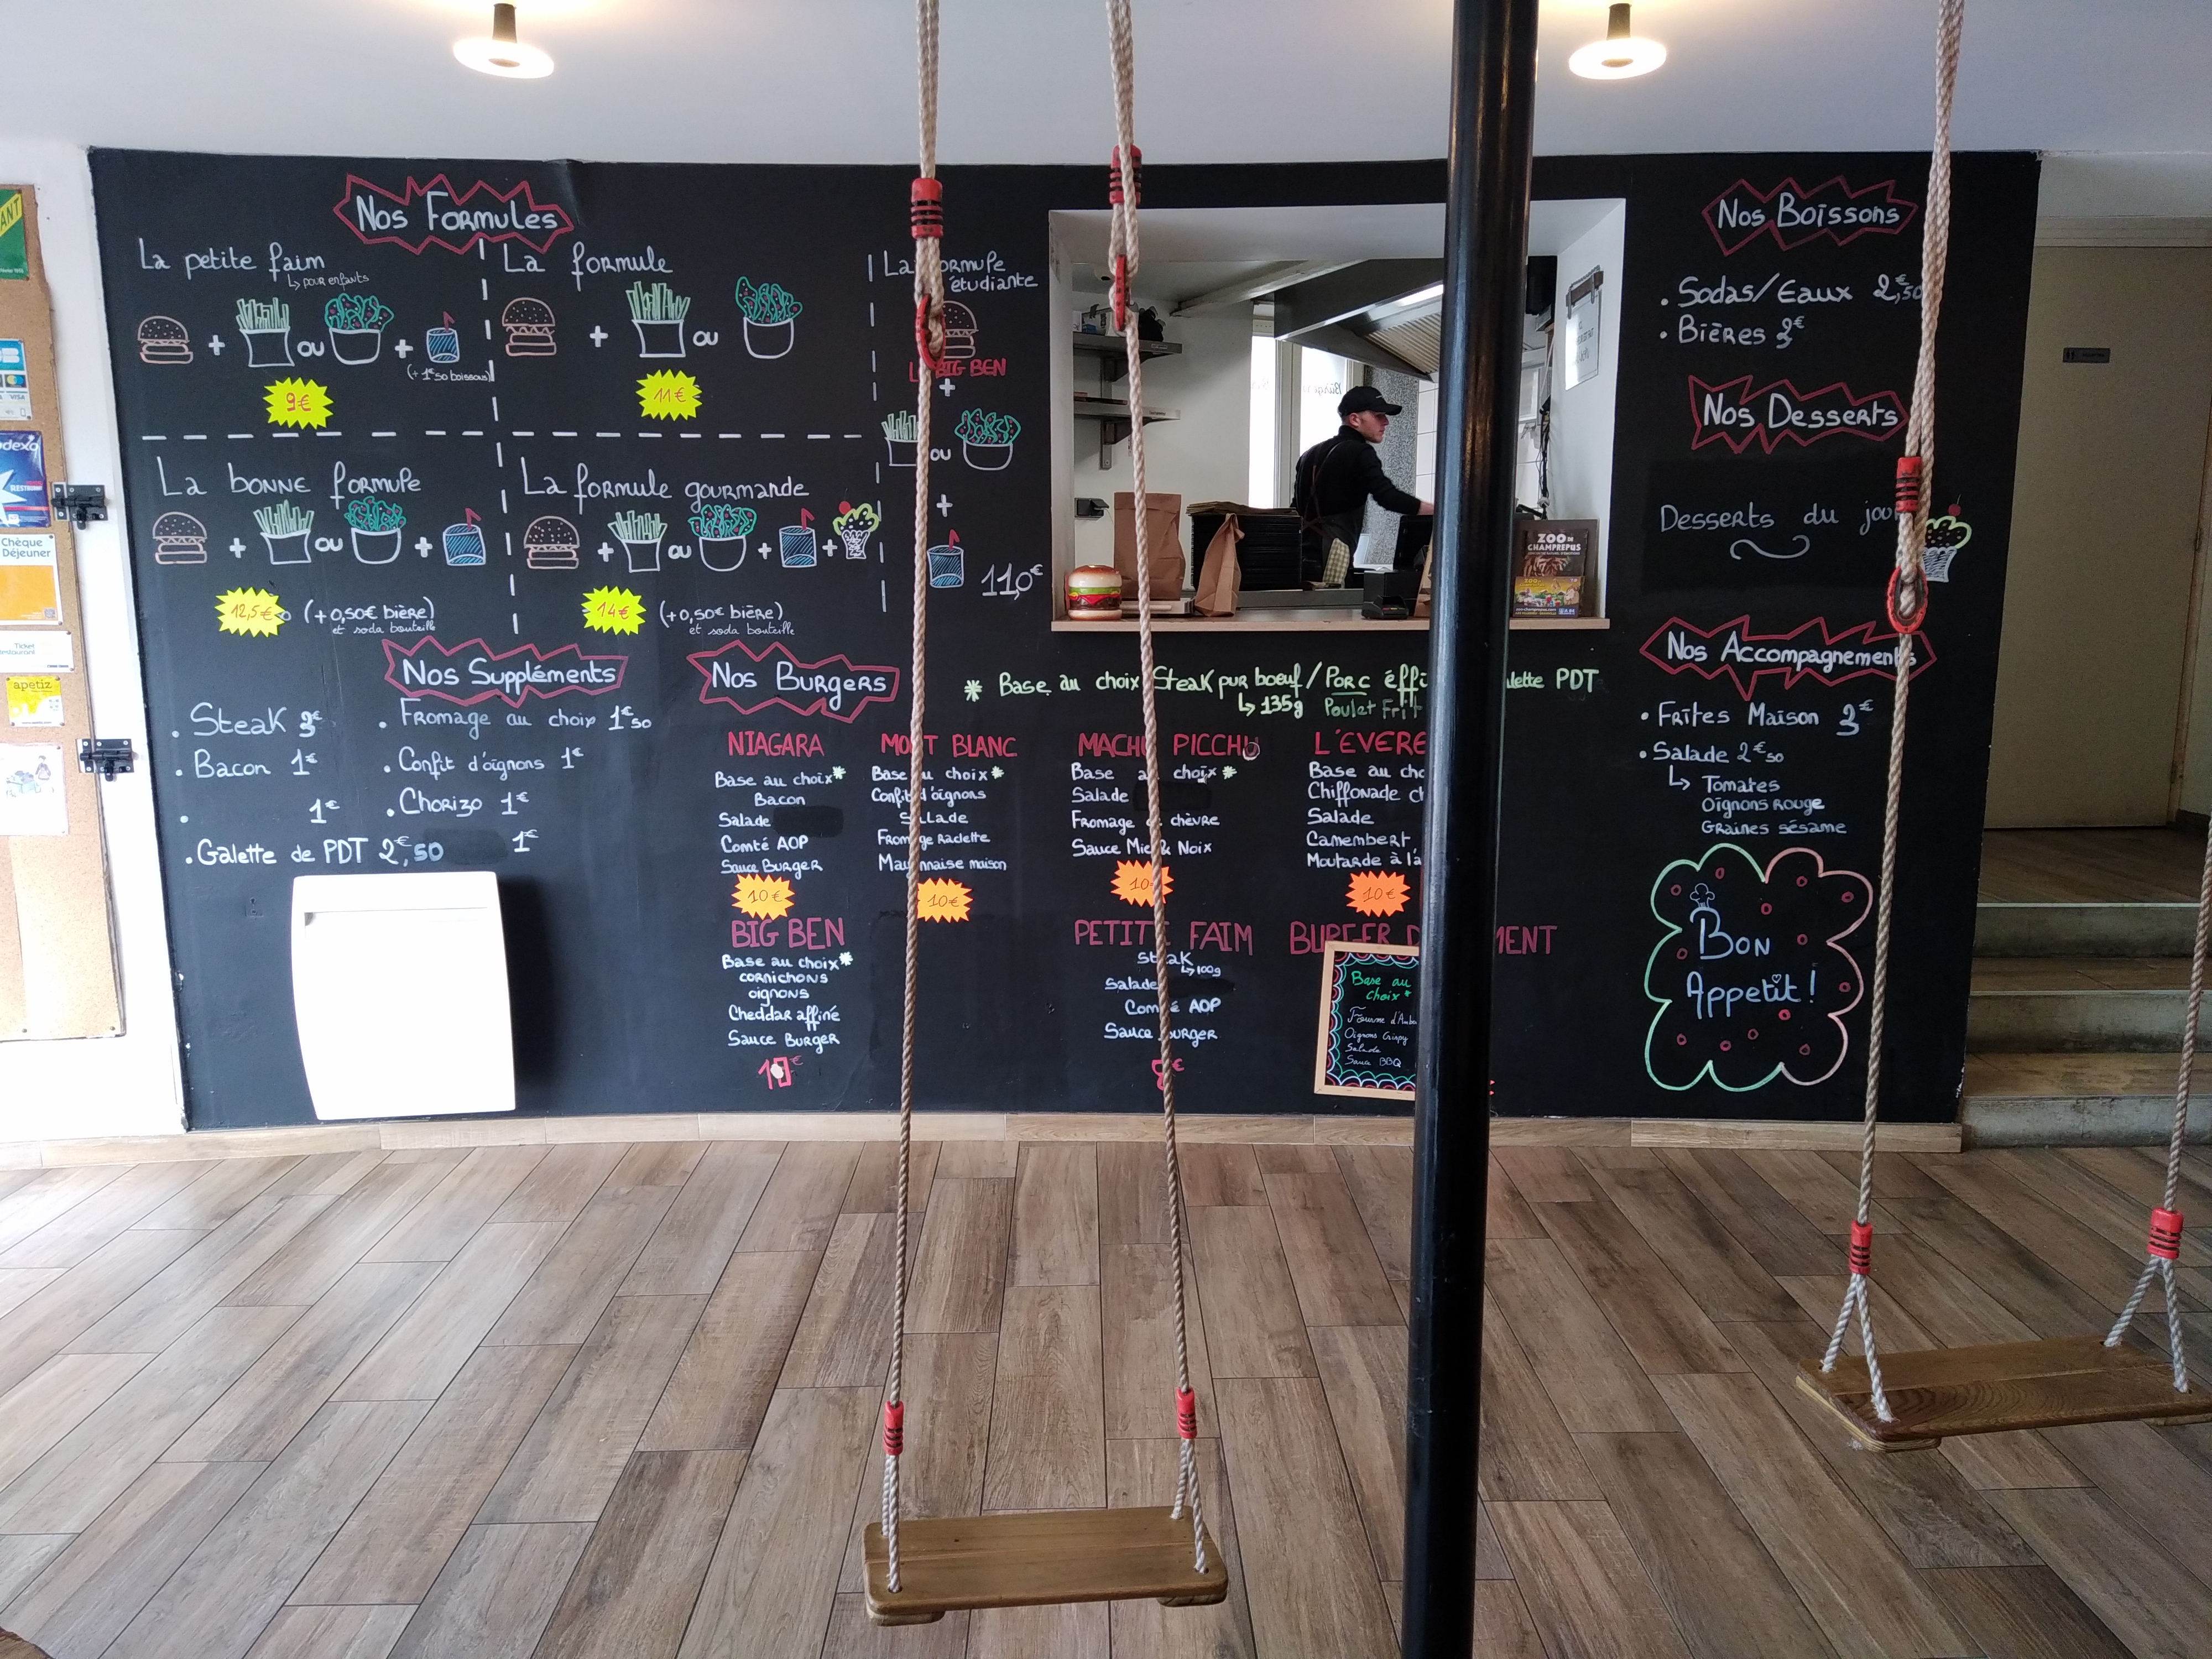 Nos Formules
La petite faim
↳ pour enfants
+ ou +
(+ 1€50 boissons)
9€
La formule
+ ou
11€
La formule
étudiante
BIG BEN
+
ou
+
11,0€
La bonne formule
+ ou +
12,5€ (+0,50€ bière)
et soda bouteille
La formule gourmande
+ ou + +
14€ (+0,50€ bière)
et soda bouteille
Nos Suppléments
. Steak 3€
. Bacon 1€
. 1€
. Galette de PDT 2€,50
. Fromage au choix 1€50
. Confit d'oignons 1€
. Chorizo 1€
1€
Nos Burgers
* Base au choix Steak pur boeuf / Porc PDT
↳ 135g Poulet Frit
NIAGARA
Base au choix*
Bacon
Salade
Comté AOP
Sauce Burger
10€
MONT BLANC
Base au choix*
Confit d'oignons
Salade
Fromage Raclette
Mayonnaise maison
10€
MACHU PICCHU
Base au choix*
Salade
Fromage de chèvre
Sauce Miel & Noix
10€
L'EVERE
Base au cho
Chiffonade
Salade
Camembert
Moutarde à l'a
10€
BIG BEN
Base au choix*
cornichons
oignons
Cheddar affiné
Sauce Burger
€
PETITE FAIM
Steak
↳ 100g
Salade
Comté AOP
Sauce Burger
8€
BURGER MENT
Base au
choix*
Fourme d'Ambe
Oignons Crispy
Salade
Sauce BBQ
Nos Boissons
. Sodas/Eaux 2€,50
. Bières 3€
Nos Desserts
Desserts du jour
Nos Accompagnements
. Frites Maison 3€
. Salade 2€50
↳ Tomates
Oignons rouge
Graines sésame
Bon
Appetit!
ZOO DE
CHAMPREPUS
Chèque
Déjeuner
Ticket
Restaurant
apetiz
VISA